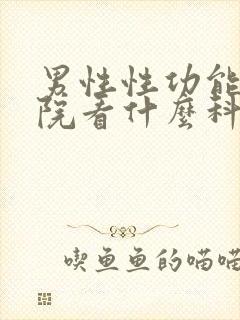 男性性功能
院看什麼科
喫魚魚的喵喵